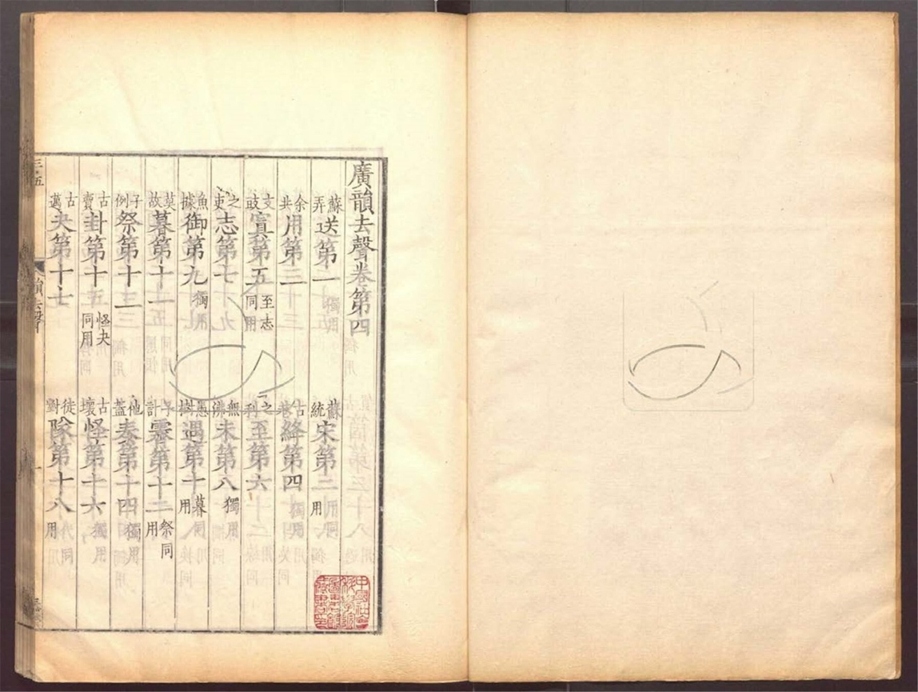 廣韻去聲卷第四
蘇弄送第一獨用 蘇統宋第二用同用
余共用第三 古巷絳第四獨用
支豉寘第五至志同用 之利至第六
之吏志第七 無沸未第八獨用
魚據御第九獨用 愚樹遇第十暮同用
莫故暮第十一 子計霽第十二祭同用
子例祭第十三 他蓋泰第十四獨用
古賣卦第十五怪夬同用 古壞怪第十六
古邁夬第十七 徒對隊第十八代同用
韻去聲